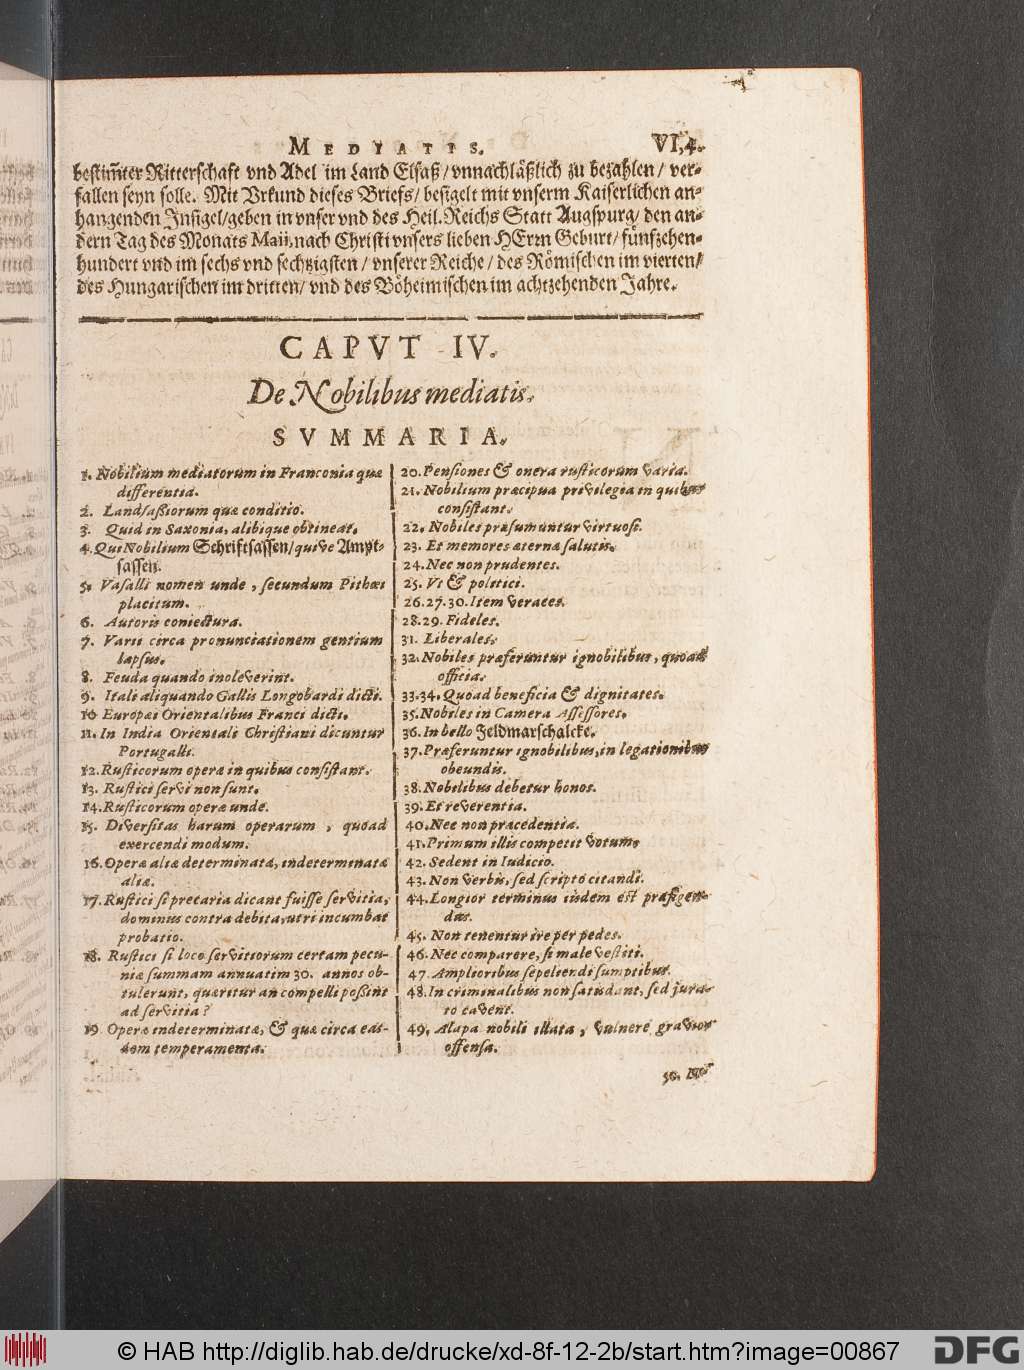 MEDIATIS. VI,4.
bestim̃ter Ritterschaft vnd Adel im Land Elsaß/ vnnachläßlich zu bezahlen/ ver-
fallen seyn solle. Mit Vrkund dieses Briefs/ besigelt mit vnserm Kaiserlichen an-
hangenden Insigel/geben in vnser vnd des Heil. Reichs Statt Augspurg/ den an-
dern Tag des Monats Maii, nach Christi vnsers lieben HErrn Geburt/ fünfzehen-
hundert vnd im sechs vnd sechtzigsten/ vnserer Reiche/ des Römischen im vierten/
des Hungarischen im dritten/ vnd des Böheimischen im achtzehenden Jahre.
CAPVT IV.
De Nobilibus mediatis.
SVMMARIA.
1. Nobilium mediatorum in Franconia quæ
differentia.
2. Landsaßiorum quæ conditio.
3. Quid in Saxonia, alibique obtineat.
4. Qui Nobilium Schriftsassen/quive Ampt-
sassen.
5. Vasalli nomen unde, secundum Pithœi
placitum.
6. Autoris coniectura.
7. Varii circa pronunciationem gentium
lapsus.
8. Feuda quando inoleverint.
9. Itali aliquando Gallis Longobardi dicti.
10 Europæi Orientalibus Franci dicti.
11. In India Orientali Christiani dicuntur
Portugalli.
12. Rusticorum operæ in quibus consistant.
13. Rustici servi non sunt.
14. Rusticorum operæ unde.
15. Diversitas harum operarum, quoad
exercendi modum.
16. Operæ aliæ determinatæ, indeterminatæ
aliæ.
17. Rustici si precaria dicant fuisse servitia,
dominus contra debita, utri incumbat
probatio.
18. Rustici si loco servitiorum certam pecu-
niæ summam annuatim 30. annos ob-
tulerunt, quæritur an compelli poßint
ad servitia?
19 Operæ indeterminatæ, & quæ circa eas-
dem temperamenta.
20. Pensiones & onera rusticorum varia.
21. Nobilium præcipua privilegia in quibus
consistant.
22. Nobiles præsumuntur virtuosi.
23. Et memores æternæ salutis.
24. Nec non prudentes.
25. Vt & politici.
26.27.30. Item veraces.
28.29. Fideles.
31. Liberales.
32. Nobiles præferuntur ignobilibus, quoad
officia.
33.34. Quoad beneficia & dignitates.
35. Nobiles in Camera Assessores.
36. In bello Feldmarschalcke.
37. Præferuntur ignobilibus, in legationibus
obeundis.
38. Nobilibus debetur honos.
39. Et reverentia.
40. Nec non præcedentia.
41. Primum illis competit votum.
42. Sedent in Iudicio.
43. Non verbis, sed scripto citandi.
44. Longior terminus iisdem est præfigen-
dus.
45. Non tenentur ire per pedes.
46. Nec comparere, si male vestiti.
47. Amplioribus sepeliendi sumptibus.
48. In criminalibus non satisdant, sed jura-
to cavent.
49. Alapa nobili illata, vulnere gravior
offensa.
50. No-
© HAB http://diglib.hab.de/drucke/xd-8f-12-2b/start.htm?image=00867
DFG